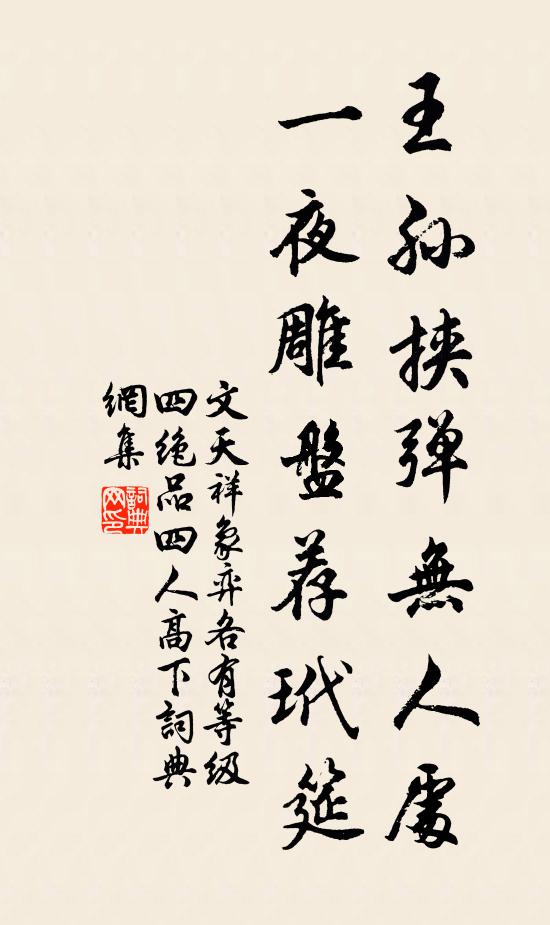 王孫挟弹無人處
一夜雕盤荐玳筵
文天祥象弈各有等级
四绝品四人高下詞典
網集
詞典
网印